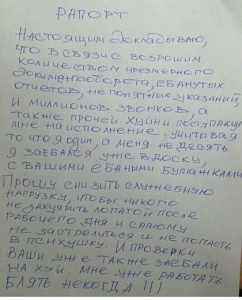 РАПОРТ
НАСТОЯЩИМ ДОКЛАДЫВАЮ,
ЧТО В СВЯЗИ С ВОЗРОШИМ
КОЛИЧЕСТВОМ ЧРЕЗМЕРНОГО
ДОКУМЕНТООБОРОТА, ЕБАНУТЫХ
ОТЧЕТОВ, НЕПОНЯТНЫХ УКАЗАНИЙ,
И МИЛЛИОНОВ ЗВОНКОВ, А
ТАКЖЕ ПРОЧЕЙ ХУЙНИ ПОСТУПАЮЩЕЙ
МНЕ НА ИСПОЛНЕНИЕ, УЧИТЫВАЯ
ТО ЧТО Я ОДИН, А МЕНЯ НЕ ДЕСЯТЬ
Я ЗАЕБАЛСЯ УЖЕ В ДОСКУ,
С ВАШИМИ ЕБАНЫМИ БУМАЖКАМИ
ПРОШУ СНИЗИТЬ СЛУЖЕБНУЮ
НАГРУЗКУ, ЧТОБЫ НИКОГО
НЕ ЗАХУЯРИТЬ ЛОПАТОЙ ПОСЛЕ
РАБОЧЕГО ДНЯ И САМОМУ
НЕ ЗАСТРЕЛИТЬСЯ И НЕ ПОПАСТЬ
В ПСИХУШКУ. И ПРОВЕРКИ
ВАШИ УЖЕ ТАКЖЕ ЗАЕБАЛИ
НА ХУЙ МНЕ УЖЕ РАБОТАТЬ
БЛЯТЬ НЕКОГДА !!!